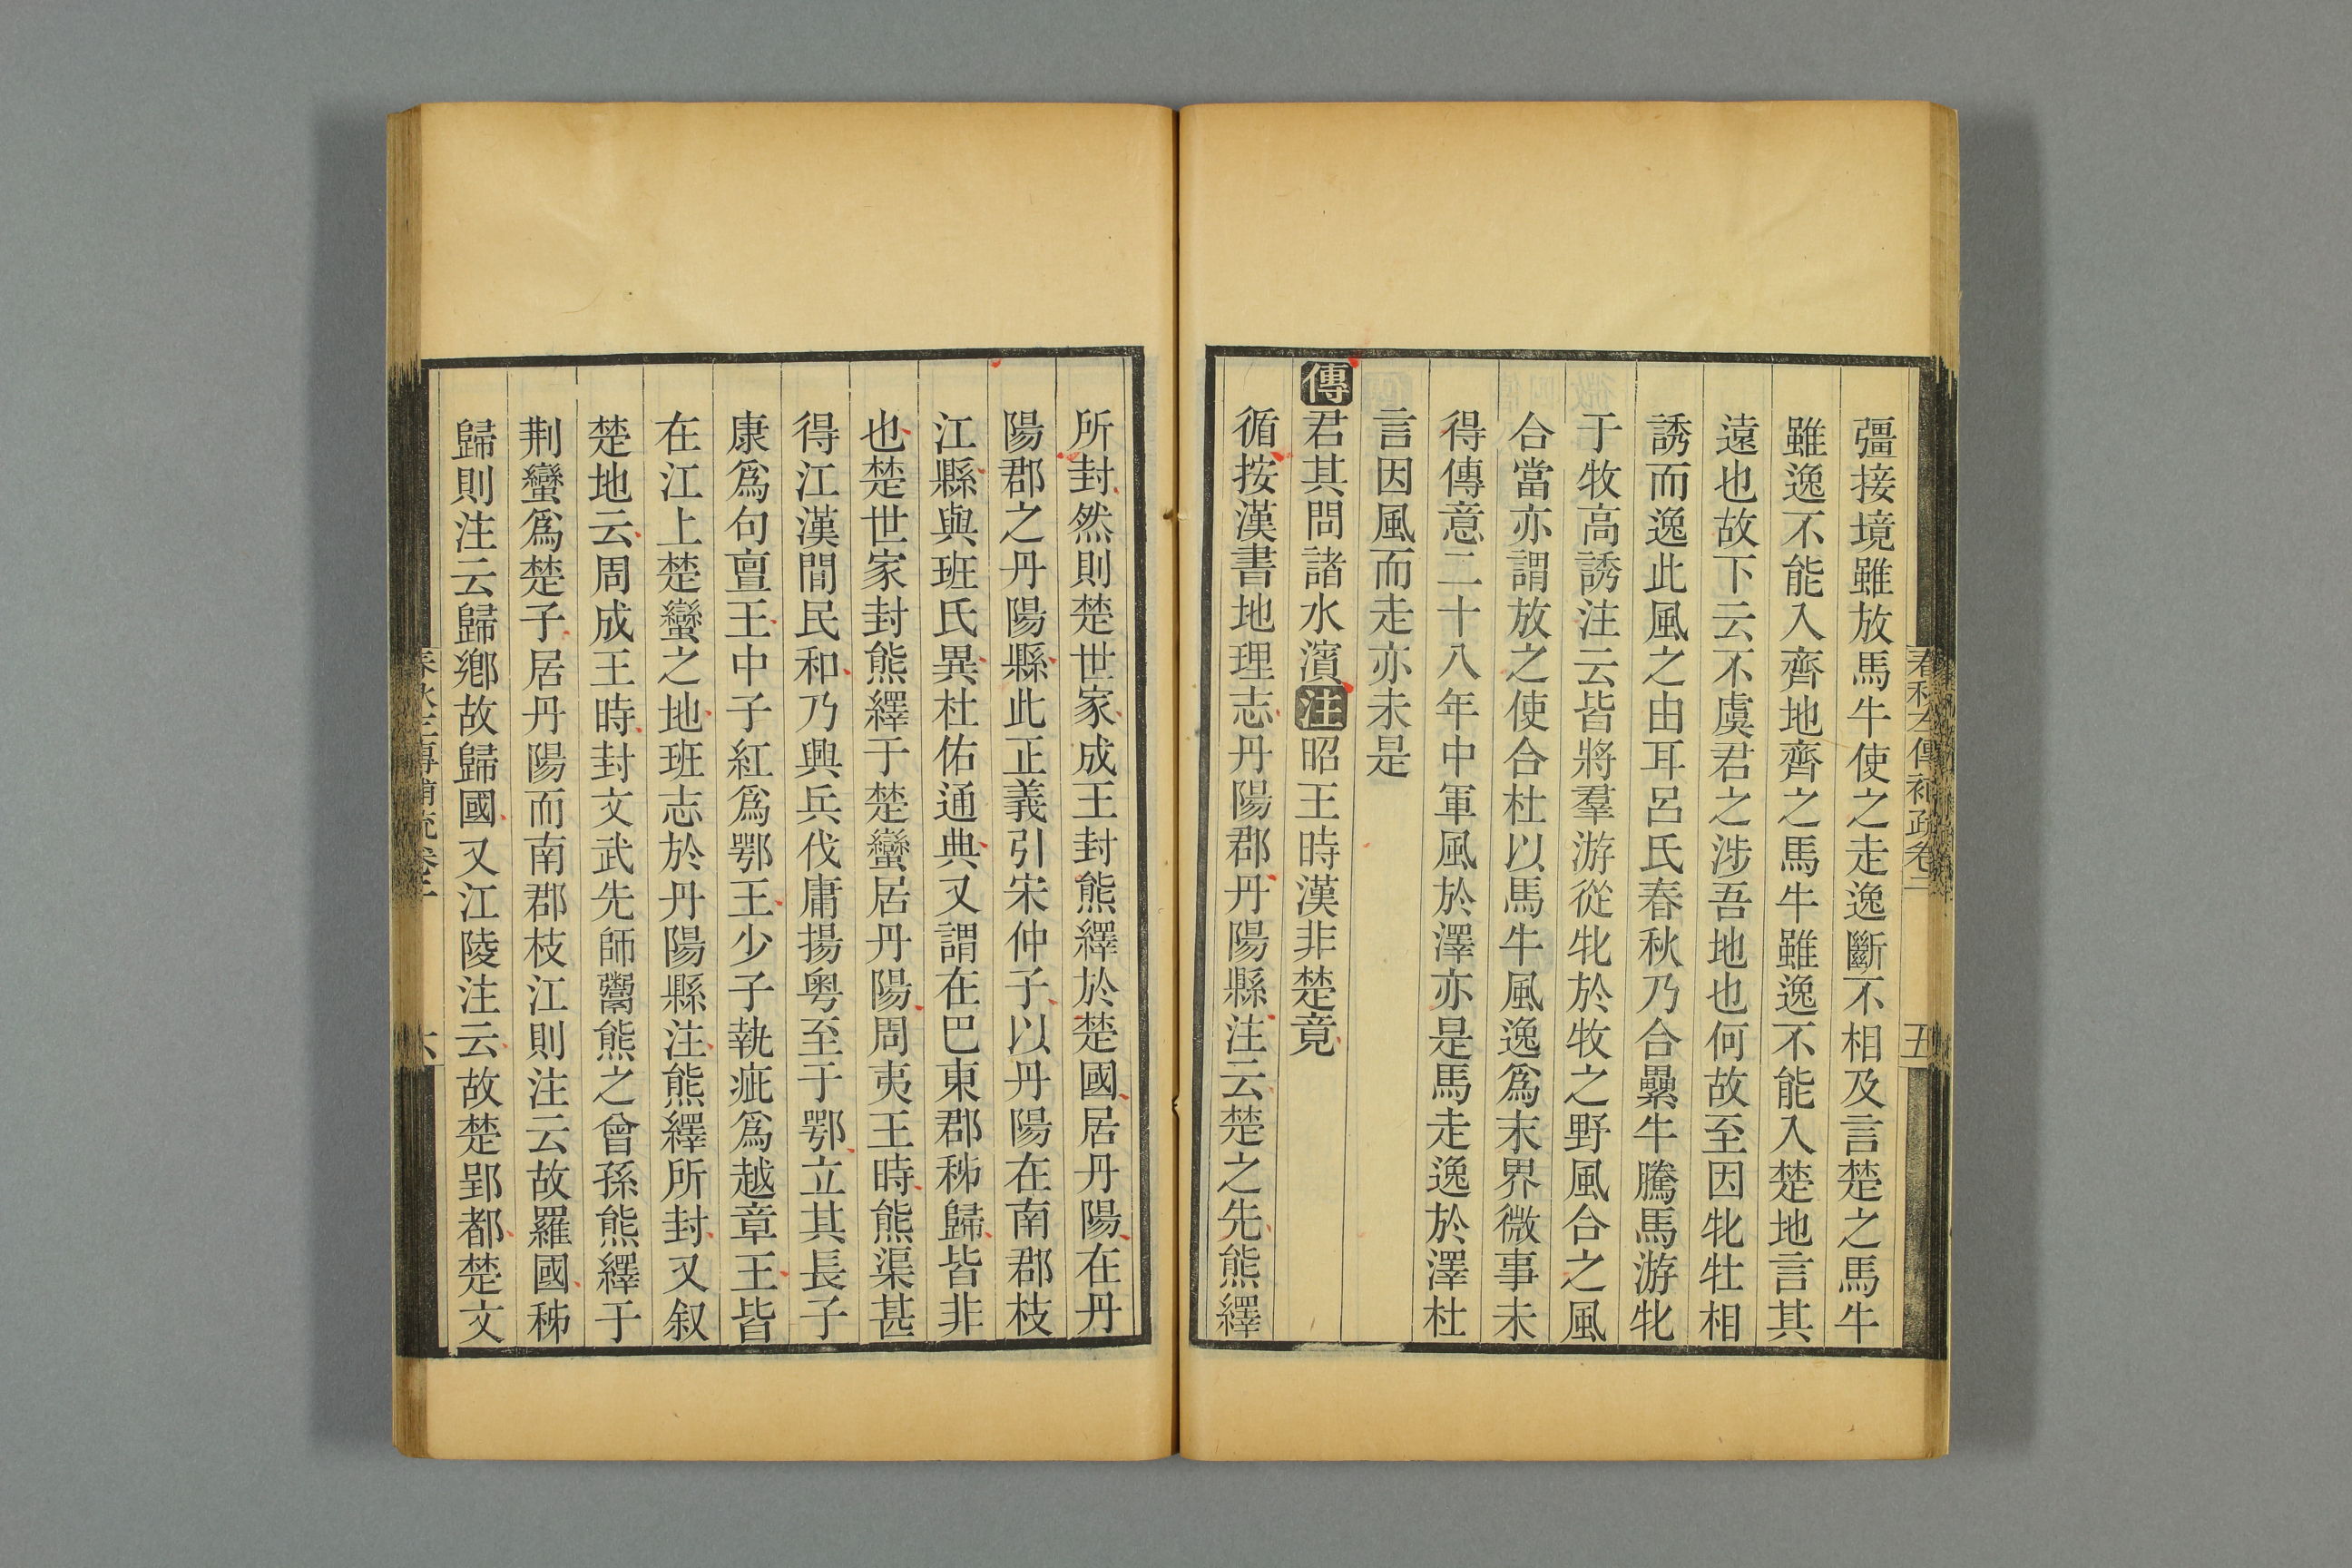 春秋左傳補疏卷二
五
彊接境雖放馬牛使之走逸斷不相及言楚之馬牛
雖逸不能入齊地齊之馬牛雖逸不能入楚地言其
遠也故下云不虞君之涉吾地也何故至因牝牡相
誘而逸此風之由耳呂氏春秋乃合纍牛騰馬游牝
于牧高誘注云皆將羣游從牝於牧之野風合之風
合當亦謂放之使合杜以馬牛風逸爲末界微事未
得傳意二十八年中軍風於澤亦是馬走逸於澤杜
言因風而走亦未是
傳君其問諸水濱注昭王時漢非楚竟
循按漢書地理志丹陽郡丹陽縣注云楚之先熊繹
所封然則楚世家成王封熊繹於楚國居丹陽在丹
陽郡之丹陽縣此正義引宋仲子以丹陽在南郡枝
江縣與班氏異杜佑通典又謂在巴東郡秭歸皆非
也楚世家封熊繹于楚蠻居丹陽周夷王時熊渠甚
得江漢閒民和乃興兵伐庸揚粤至于鄂立其長子
康爲句亶王中子紅爲鄂王少子執疵爲越章王皆
在江上楚蠻之地班志於丹陽縣注熊繹所封又叙
楚地云周成王時封文武先師鬻熊之曾孫熊繹于
荆蠻爲楚子居丹陽而南郡枝江則注云故羅國秭
歸則注云歸鄉故歸國又江陵注云故楚郢都楚文
春秋左傳補疏卷二
六